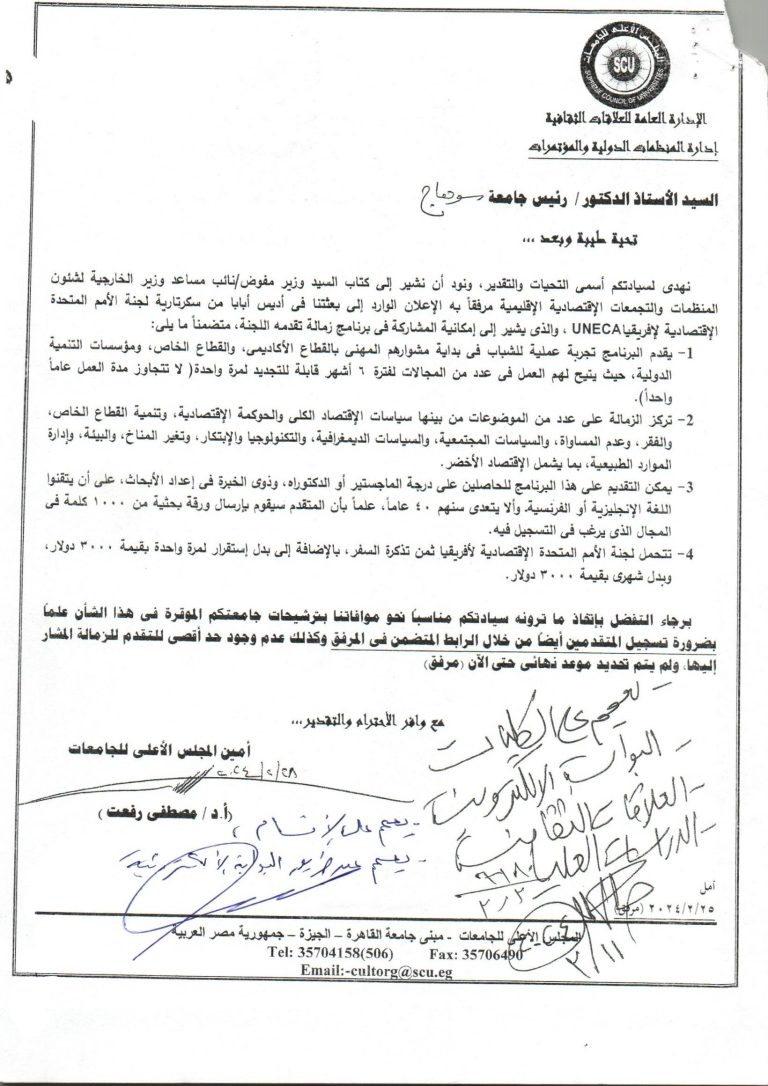 المجلس الأعلى للجامعات
SCU
SUPREME COUNCIL OF UNIVERSITIES
الإدارة العامة للعلاقات الثقافية
إدارة المنظمات الدولية والمؤتمرات
السيد الأستاذ الدكتور/ رئيس جامعة سوهاج
تحية طيبة وبعد ،،،
نهدى لسيادتكم أسمى التحيات والتقدير، ونود أن نشير إلى كتاب السيد وزير مفوض/نائب مساعد وزير الخارجية لشئون
المنظمات والتجمعات الإقتصادية الإقليمية مرفقاً به الإعلان الوارد إلى بعثتنا فى أديس أبابا من سكرتارية لجنة الأمم المتحدة
الإقتصادية لإفريقيا UNECA ، والذى يشير إلى إمكانية المشاركة فى برنامج زمالة تقدمه اللجنة، متضمناً ما يلى:
1- يقدم البرنامج تجربة عملية للشباب فى بداية مشوارهم المهنى بالقطاع الأكاديمى، والقطاع الخاص، ومؤسسات التنمية
الدولية، حيث يتيح لهم العمل فى عدد من المجالات لفترة ٦ أشهر قابلة للتجديد لمرة واحدة( لا تتجاوز مدة العمل عاماً
واحداً).
2- تركز الزمالة على عدد من الموضوعات من بينها سياسات الإقتصاد الكلى والحوكمة الإقتصادية، وتنمية القطاع الخاص،
والفقر، وعدم المساواة، والسياسات المجتمعية، والسياسات الديمغرافية، والتكنولوجيا والإبتكار، وتغير المناخ، والبيئة، وإدارة
الموارد الطبيعية، بما يشمل الإقتصاد الأخضر.
3- يمكن التقديم على هذا البرنامج للحاصلين على درجة الماجستير أو الدكتوراه، وذوى الخبرة فى إعداد الأبحاث، على أن يتقنوا
اللغة الإنجليزية أو الفرنسية. وألا يتعدى سنهم ٤٠ عاماً، علماً بأن المتقدم سيقوم بإرسال ورقة بحثية من ١٠٠٠ كلمة فى
المجال الذى يرغب فى التسجيل فيه.
4- تتحمل لجنة الأمم المتحدة الإقتصادية لأفريقيا ثمن تذكرة السفر، بالإضافة إلى بدل إستقرار لمرة واحدة بقيمة ٣٠٠٠ دولار،
وبدل شهرى بقيمة ٣٠٠٠ دولار.
برجاء التفضل بإتخاذ ما ترونه سيادتكم مناسباً نحو موافاتنا بترشيحات جامعتكم الموقرة فى هذا الشأن علماً
بضرورة تسجيل المتقدمين أيضاً من خلال الرابط المتضمن فى المرفق وكذلك عدم وجود حد أقصى للتقدم للزمالة المشار
إليها، ولم يتم تحديد موعد نهائى حتى الآن (مرفق)
مع وافر الأحترام والتقدير،،،
أمين المجلس الأعلى للجامعات
٢٠٢٤/٢/٢٨
(أ.د/ مصطفى رفعت )
- تعمم على الكليات
- البوابة الالكترونية
- العلاقات الثقافية
- الدراسات العليا
- يعمم على الأقسام
- يعمم عن طريق البوابة الالكترونية
٣/١١
أمل
٢٠٢٤/٢/٢٥ (مرفق)
المجلس الأعلى للجامعات - مبنى جامعة القاهرة – الجيزة – جمهورية مصر العربية
Tel: 35704158(506) Fax: 35706490
Email:-cultorg@scu.eg